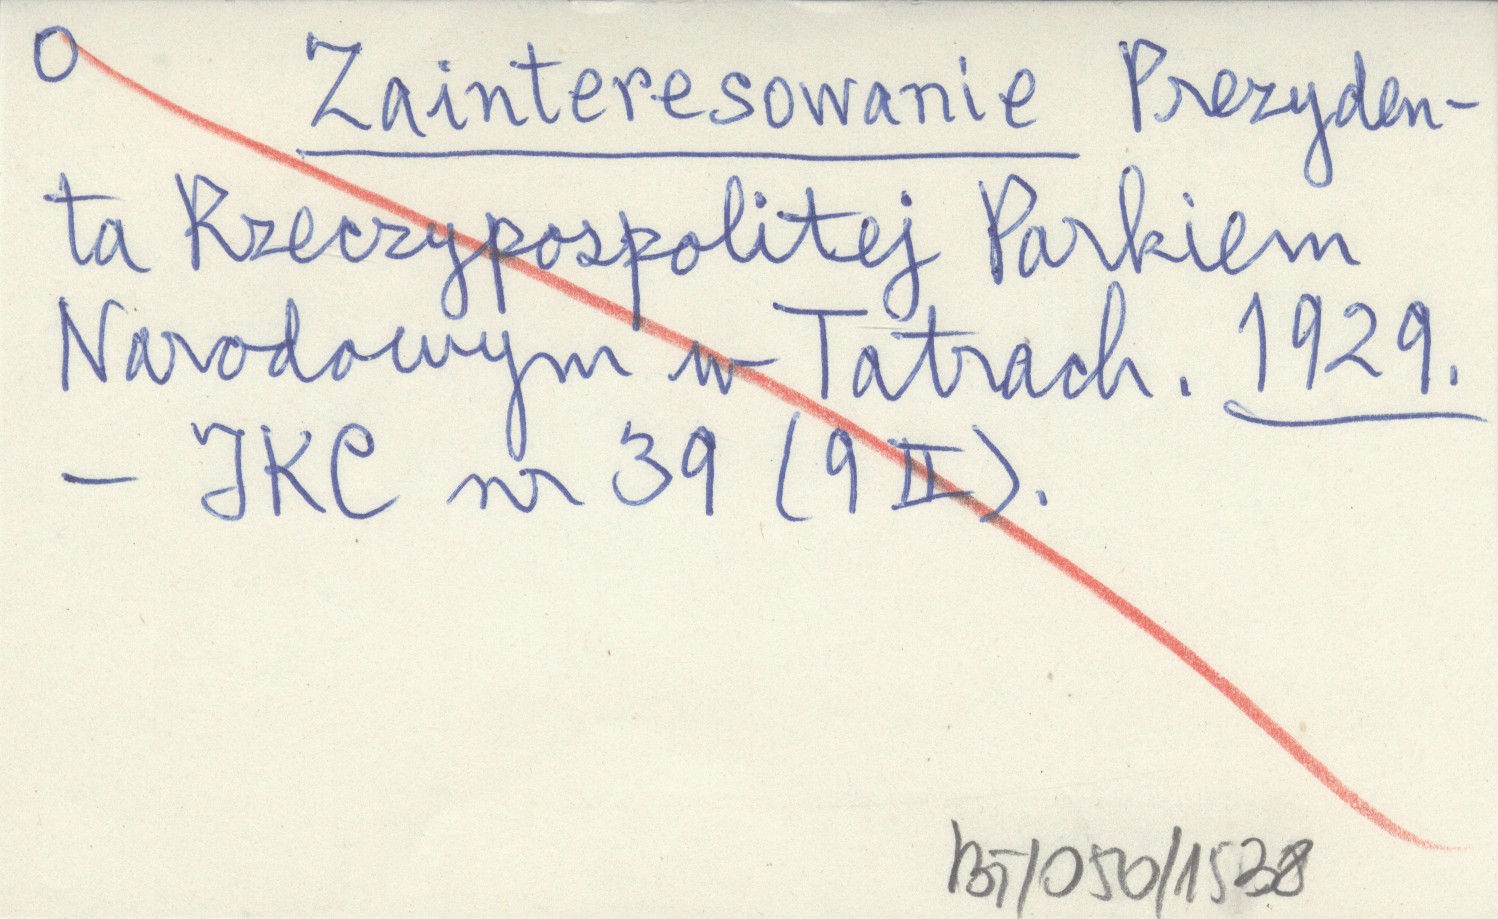 O Zainteresowanie Prezyden-
ta Rzeczypospolitej Parkiem
Narodowym w Tatrach. 1929.
– IKC nr 39 (9 II).
BT/050/1538